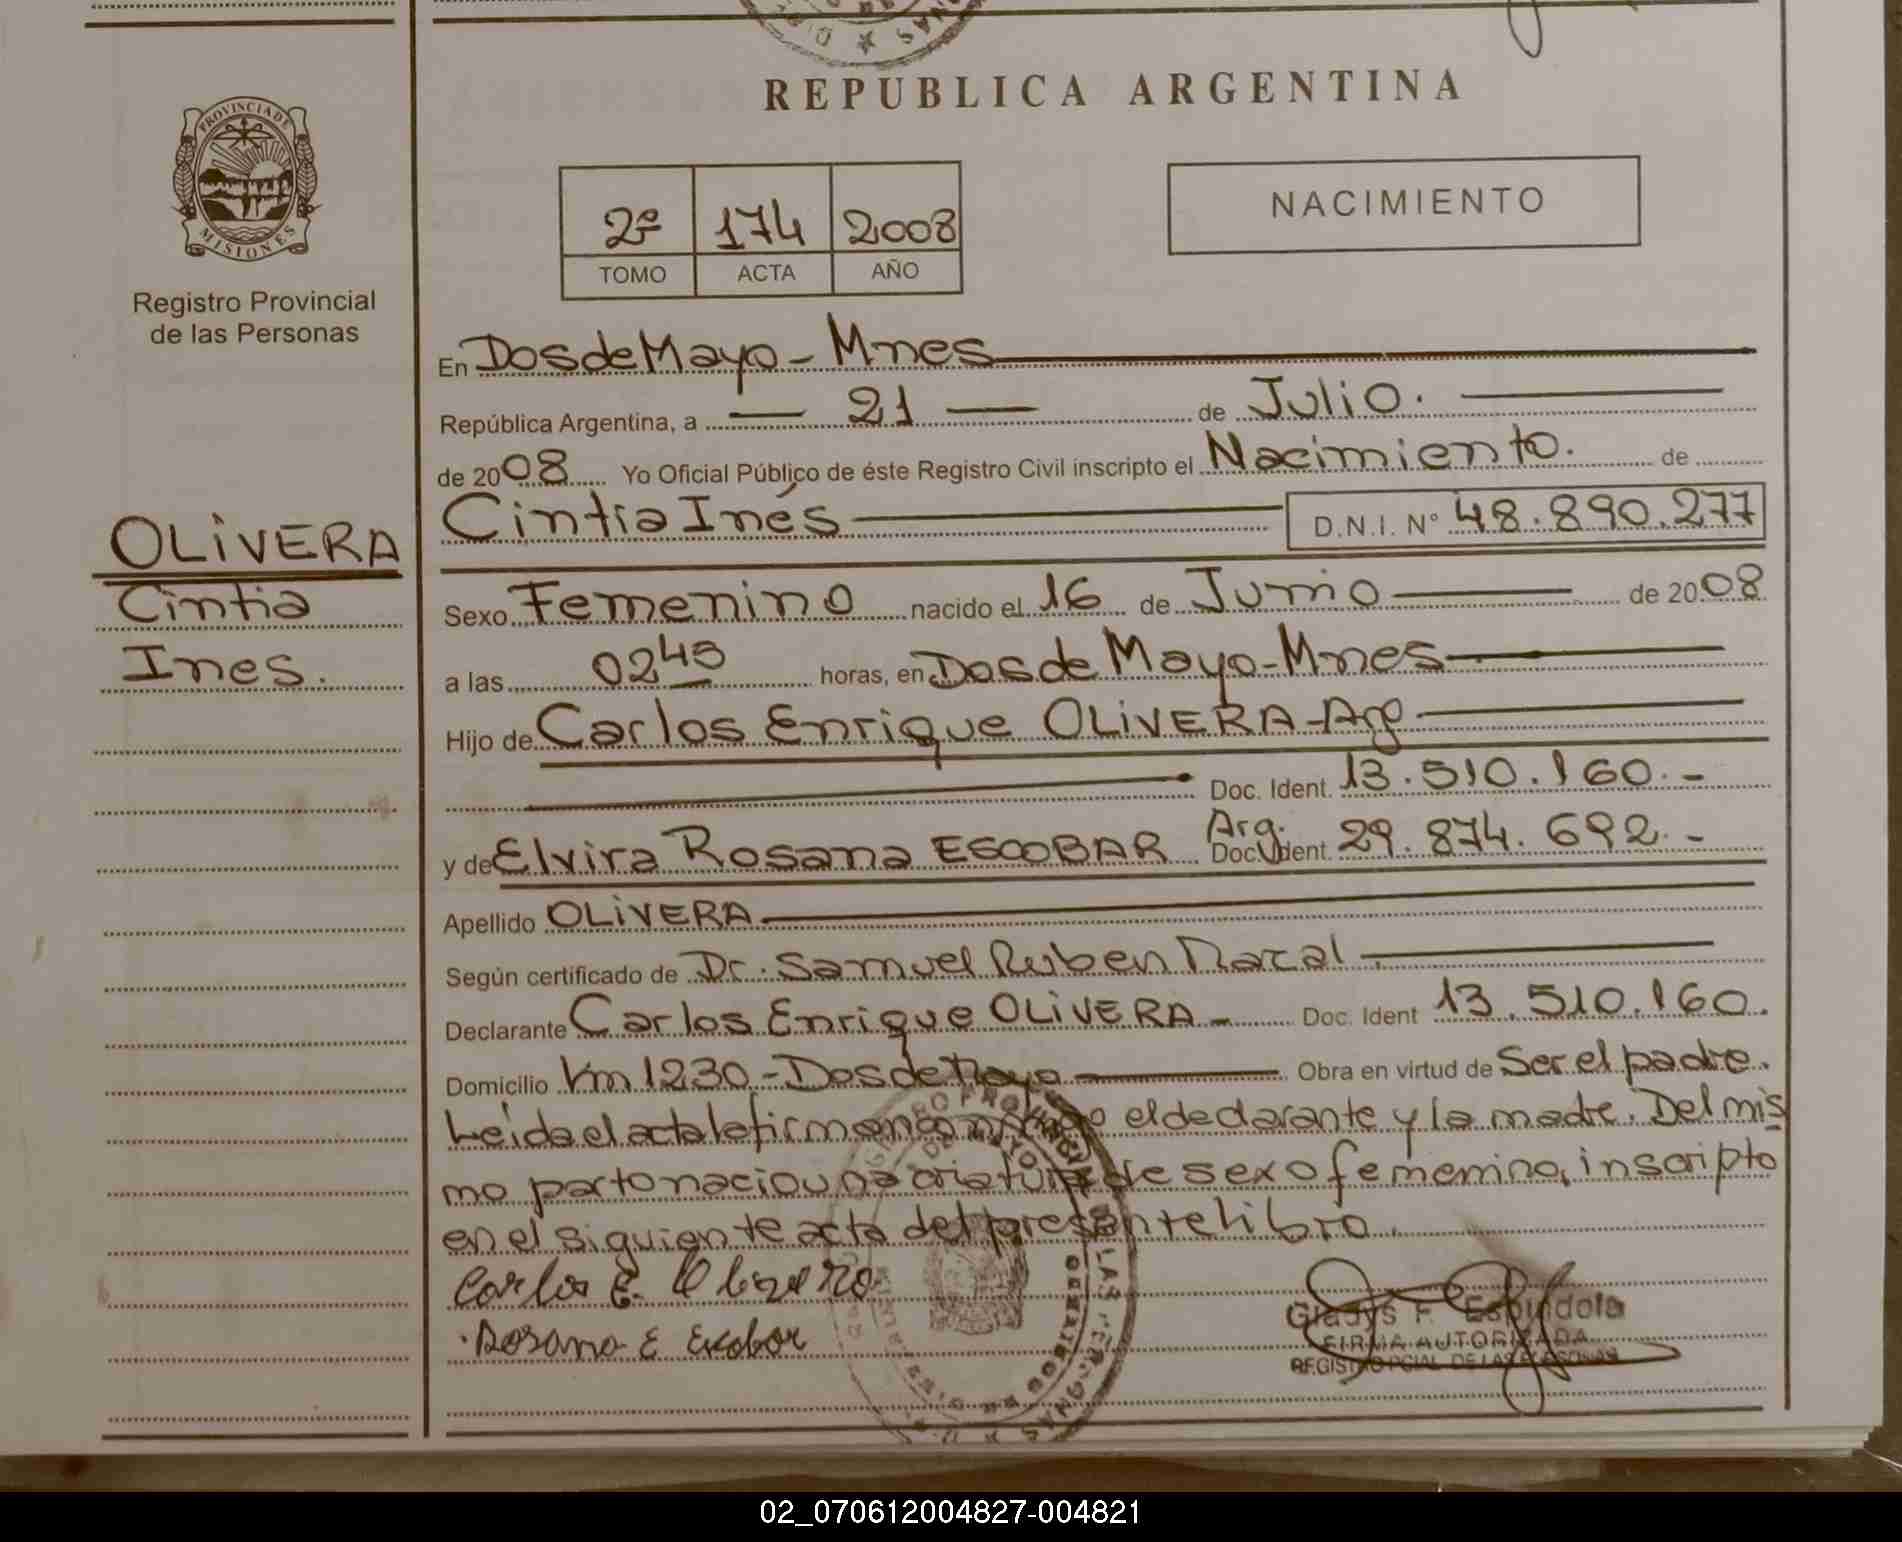 REPUBLICA ARGENTINA
PROVINCIA DE MISIONES
Registro Provincial
de las Personas
2º 174 2008
TOMO ACTA AÑO
NACIMIENTO
En Dos de Mayo - Mnes
República Argentina, a — 21 — de Julio.
de 2008 Yo Oficial Público de éste Registro Civil inscripto el Nacimiento. de
Cintia Inés D.N.I. Nº 48.890.277
OLIVERA
Cintia
Ines.
Sexo Femenino nacido el 16 de Junio de 2008
a las 02 45 horas, en Dos de Mayo - Mnes
Hijo de Carlos Enrique OLIVERA - Arg
Doc. Ident. 13.510.160.-
y de Elvira Rosana ESCOBAR Arg. Doc. Ident. 29.874.692.-
Apellido OLIVERA
Según certificado de Dr. Samuel Ruben
Declarante Carlos Enrique OLIVERA - Doc. Ident 13.510.160.
Domicilio Km 1230 - Dos de Mayo Obra en virtud de Ser el padre.
Leída el acta la firman conmigo el declarante y la madre. Del mis
mo parto nació una criatura de sexo femenino, inscripto
en el siguiente acta del presente libro.
Carlos E. Olivera
Rosana E Escobar
Gladys F. Espindola
FIRMA AUTORIZADA
REGISTRO PCIAL. DE LAS PERSONAS
02_070612004827-004821